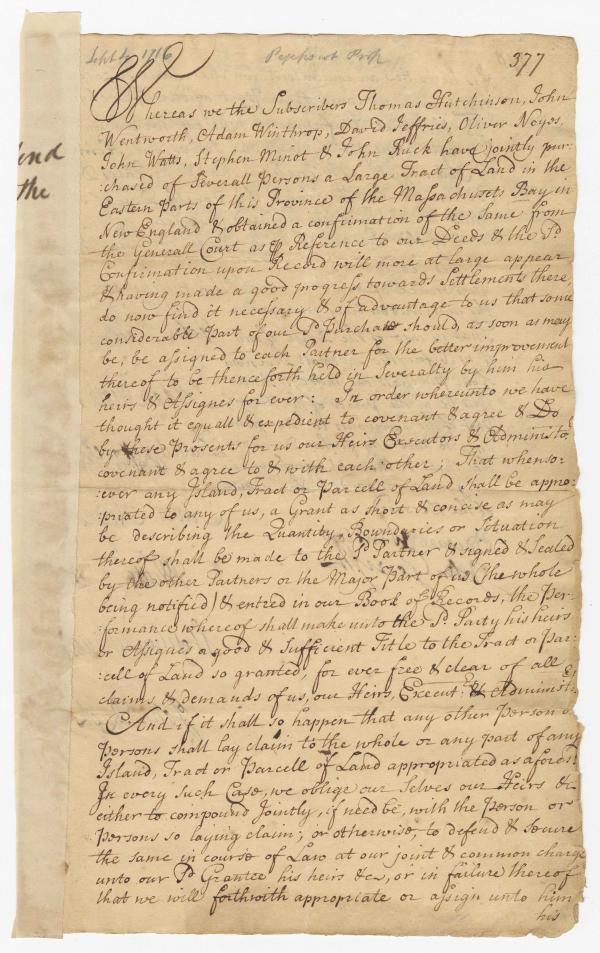 Sept 4 1716 Pejepscot Prop
377
end
the
Whereas we the Subscribers Thomas Hutchinson, John
Wentworth, Adam Winthrop, David Jeffries, Oliver Noyes,
John Watts, Stephen Minot & John Ruck have jointly pur-
-chased of Severall Persons a Large Tract of Land in the
Eastern Parts of this Province of the Massachusets Bay in
New England & obtained a confirmation of the Same from
the Generall Court as Reference to our Deeds & the Sd
Confirmation upon Record will more at large appear
& having made a good progress towards Settlements there,
do now find it necessary & of advantage to us that some
considerable Part of our Sd Purchase should, as soon as may
be, be assigned to each Partner for the better improvement
thereof to be thenceforth held in Severalty by him his
heirs & Assignes for ever: In order whereunto we have
thought it equall & expedient to covenant & agree & Do
by these Presents for us our Heirs Executors & Administo.
covenant & agree to & with each other; That whenso-
:ever any Island, Tract or Parcell of Land shall be appro:
:priated to any of us, a Grant as short & concise as may
be describing the Quantity, Bounderies or Situation
thereof shall be made to the Sd Partner & signed & Sealed
by the other Partners or the Major Part of us (the whole
being notified) & entred in our Book of Records, the Per-
:formance whereof shall make unto the Sd. Party his heirs
or Assignes a good & Sufficient Title to the Tract or Par-
:cell of Land so granted, for ever free & clear of all
claims & demands of us, our Heirs, Execut.rs & Administ.rs
And if it shall so happen that any other Person or
Persons shall lay claim to the whole or any part of any
Island, Tract or Parcell of Land appropriated as aforesd.
In every Such Case, we oblige our Selves our Heirs &c
either to compound Jointly, if need be, with the Person or
Persons so laying claim; or otherwise, to defend & secure
the same in course of Law at our joint & common charge
unto our Sd Grantee his heirs &c, or in failure thereof
that we will forthwith appropriate or assign unto him
his